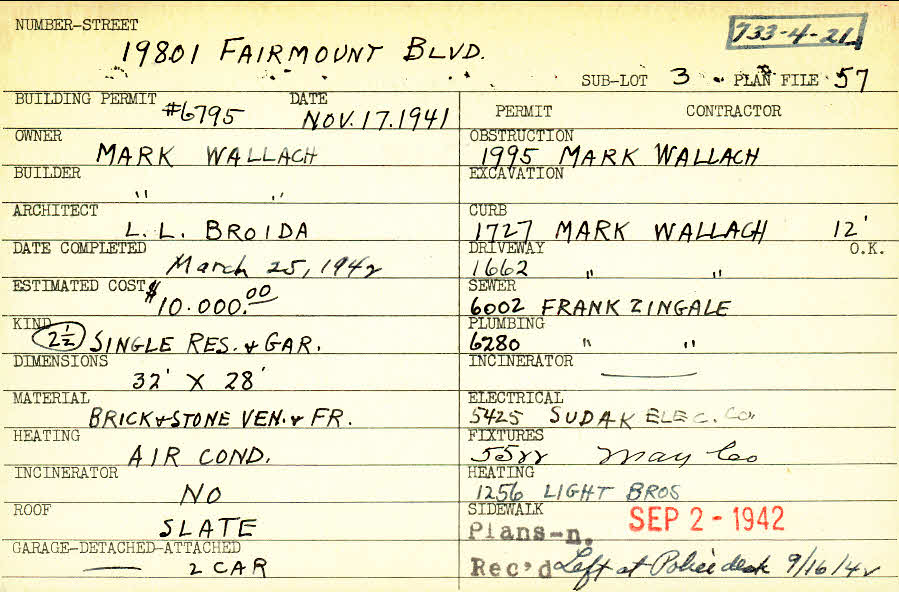 NUMBER-STREET
733-4-21
19801 FAIRMOUNT BLVD.
SUB-LOT 3 PLAN FILE 57
BUILDING PERMIT #6795 DATE NOV. 17. 1941
PERMIT CONTRACTOR
OWNER MARK WALLACH
OBSTRUCTION 1995 MARK WALLACH
BUILDER " "
EXCAVATION
ARCHITECT L. L. BROIDA
CURB 1727 MARK WALLACH 12'
DATE COMPLETED March 25, 1942
DRIVEWAY 1662 " " O.K.
ESTIMATED COST $10.000.00
SEWER 6002 FRANK ZINGALE
KIND 2½ SINGLE RES. & GAR.
PLUMBING 6280 " "
DIMENSIONS 32' X 28'
INCINERATOR —
MATERIAL BRICK & STONE VEN. & FR.
ELECTRICAL 5425 SUDAK ELEC. CO.
HEATING AIR COND.
FIXTURES 5522 May Co
INCINERATOR NO
HEATING 1256 LIGHT BROS
ROOF SLATE
SIDEWALK
SEP 2 - 1942
Plans-n.
GARAGE-DETACHED-ATTACHED — 2 CAR
Rec'd Left at Police desk 9/16/42